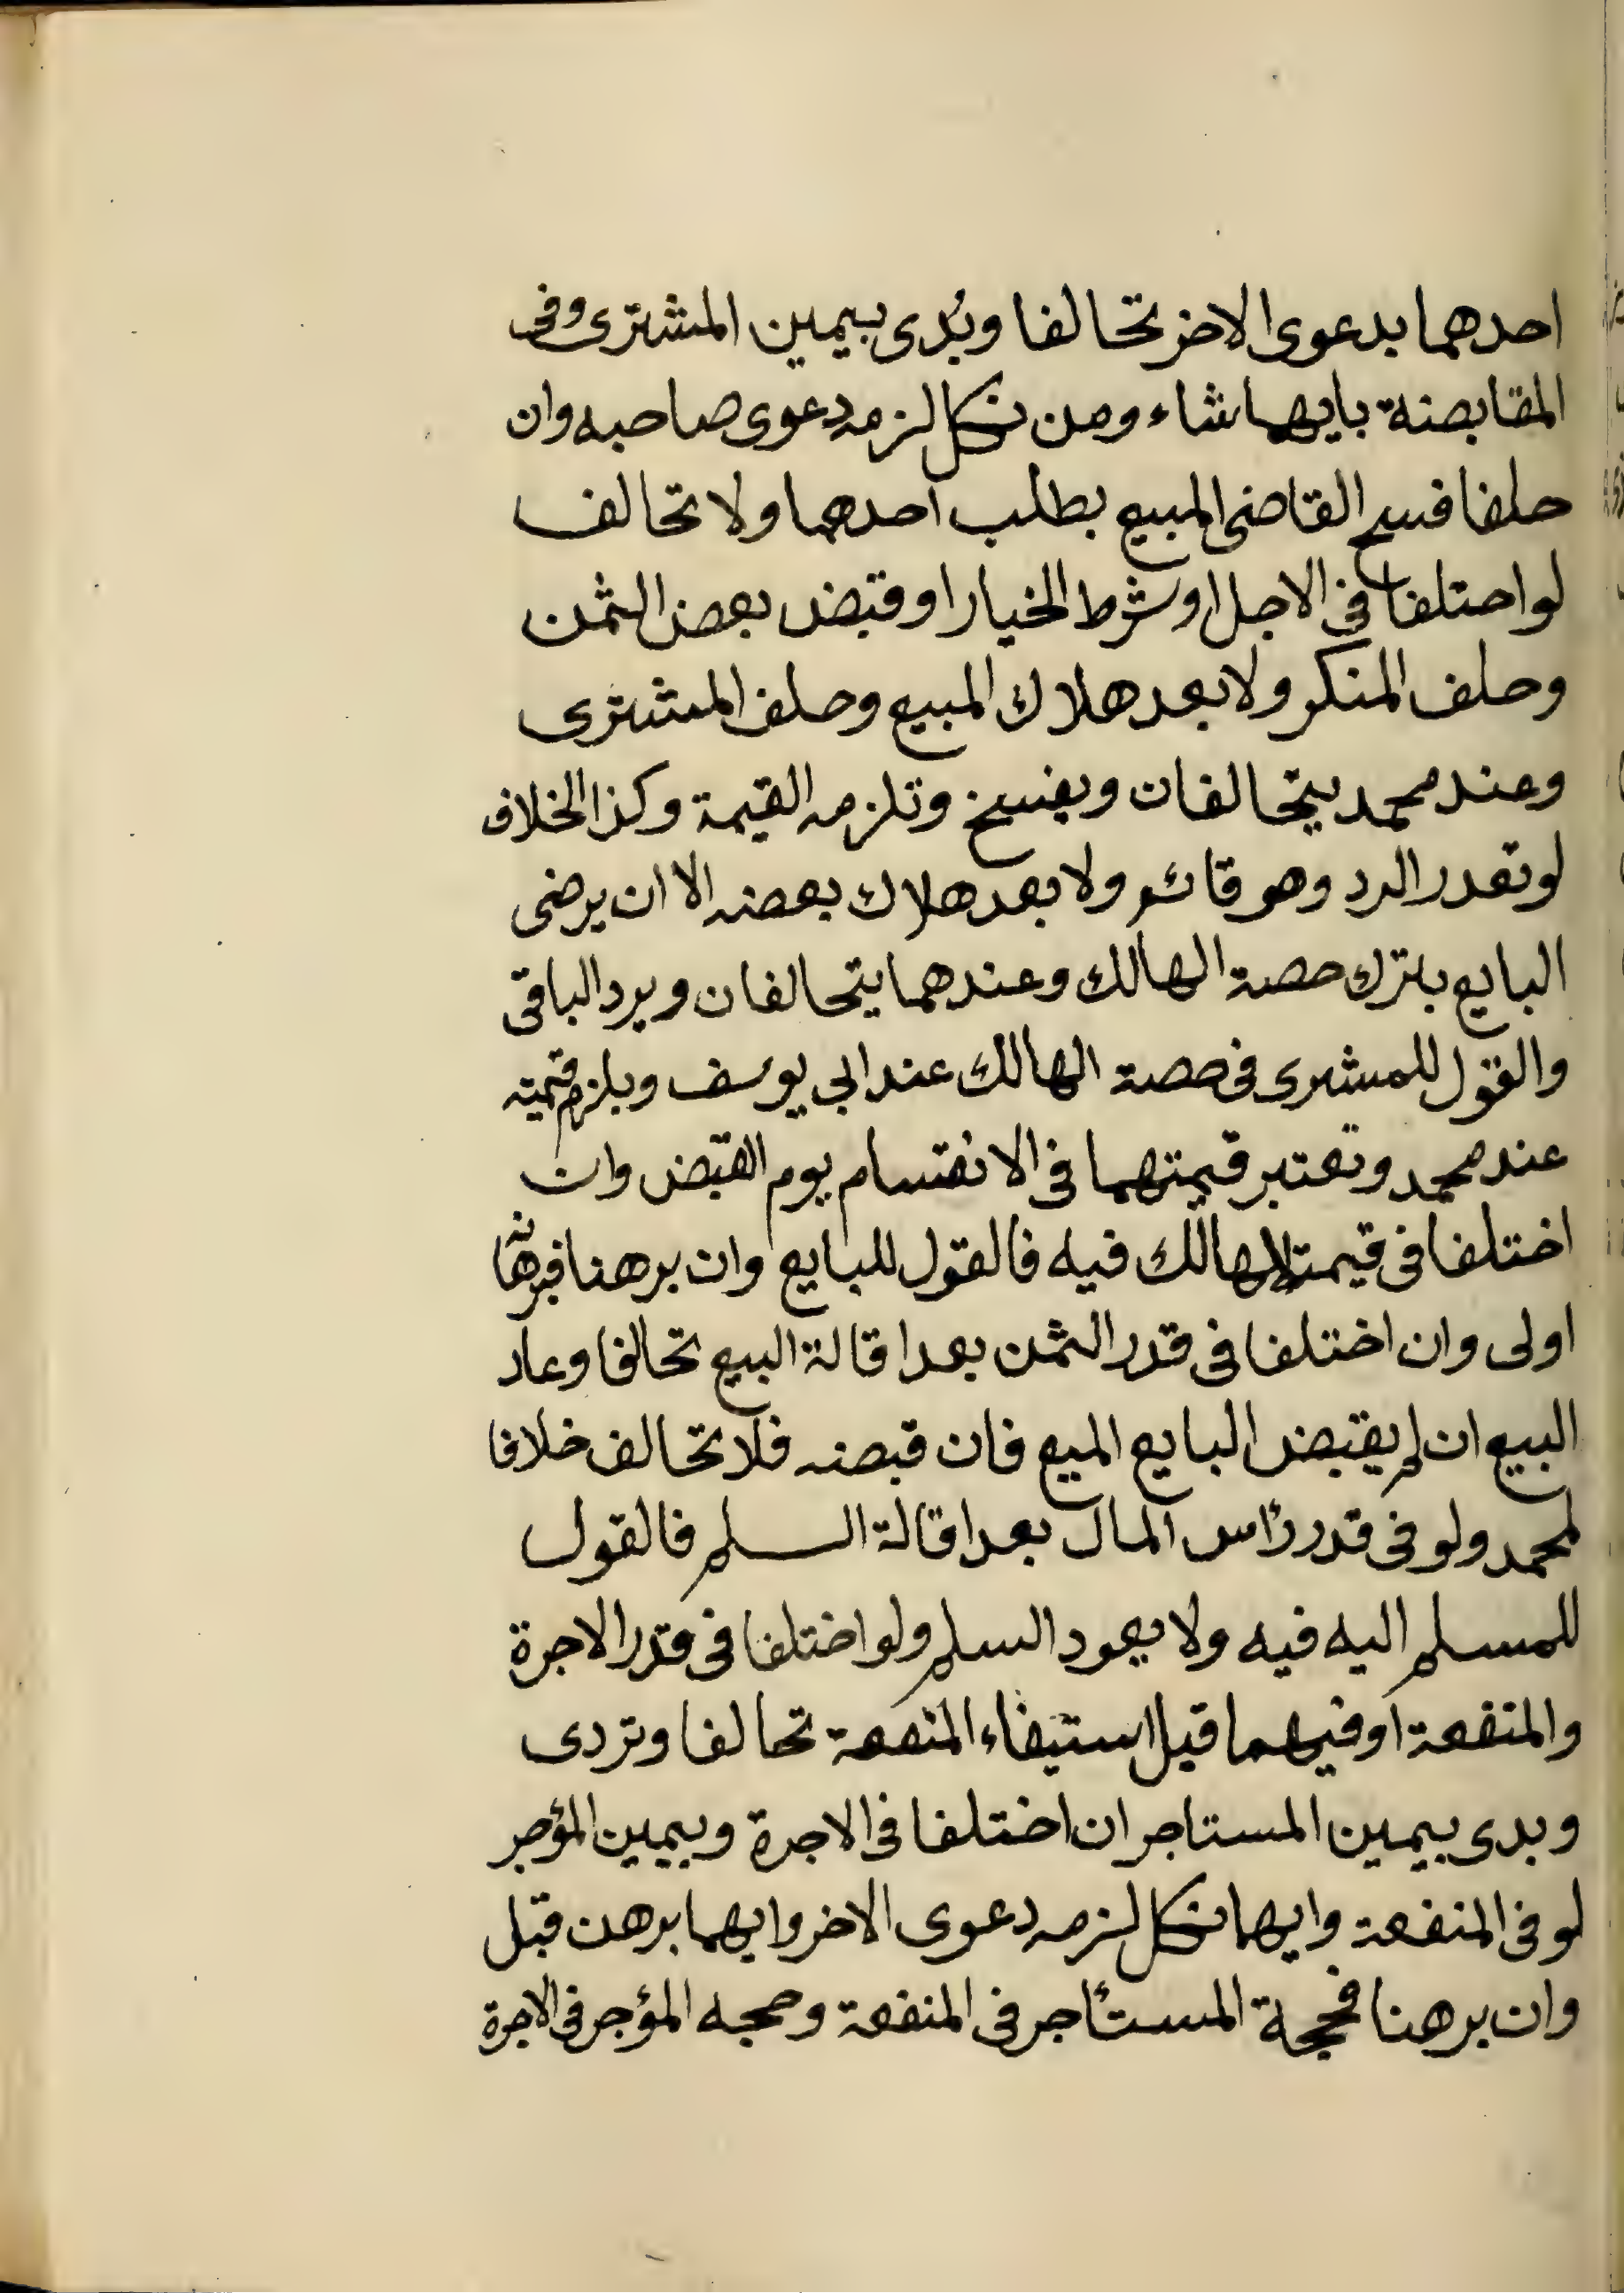 احدهما بدعوى الاخر تحالفا وبُدى بيمين المشترى وفى
المقايضة بايهما شاء ومن نكل لزمه دعوى صاحبه وان
حلفا فسخ القاضى المبيع بطلب احدهما ولا تحالف
لو اختلفا فى الاجل او شرط الخيار او قبض بعض الثمن
وحلف المنكر ولا بعد هلاك المبيع وحلف المشترى
وعند محمد يتحالفان ويفسخ وتلزمه القيمة وكذا الخلاف
لو تعذر الرد وهو قائم ولا بعد هلاك بعضه الا ان يرضى
البايع بترك حصة الهالك وعندهما يتحالفان ويرد الباقى
والقول للمشترى فى حصة الهالك عند ابى يوسف ويلزم قيمته
عند محمد وتعتبر قيمتهما فى الانقسام يوم القبض وان
اختلفا فى قيمة الهالك فيه فالقول للبايع وان برهنا فبرهانه
اولى وان اختلفا فى قدر الثمن بعد اقالة البيع تحالفا وعاد
البيع ان لم يقبض البايع الميع فان قبضه فلا تحالف خلافا
لمحمد ولو فى قدر رأس المال بعد اقالة السلم فالقول
للمسلم اليه فيه ولا يعود السلم ولو اختلفا فى قدر الاجرة
والمنفعة او فيهما قبل استيفاء المنفعة تحالفا وتردى
وبدى بيمين المستاجر ان اختلفا فى الاجرة وبيمين المؤجر
لو فى المنفعة وايهما نكل لزمه دعوى الاخر وايهما برهن قبل
وان برهنا فحجة المستأجر فى المنفعة وحجه المؤجر فى الاجرة